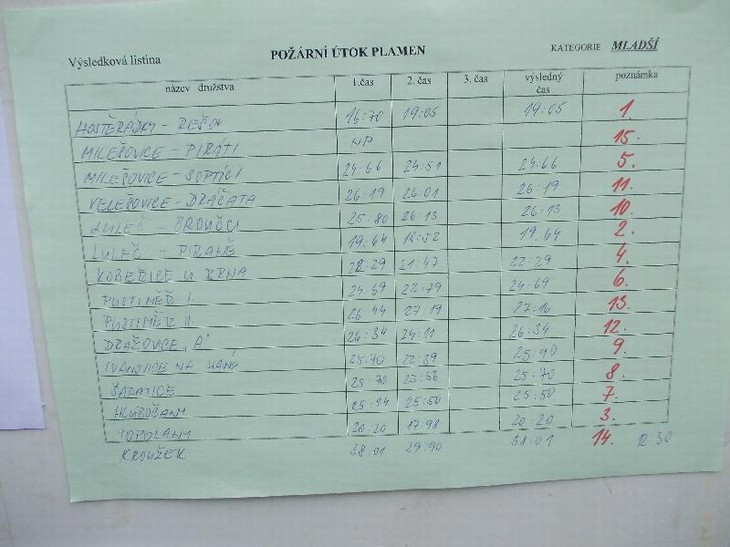 Výsledková listina POŽÁRNÍ ÚTOK PLAMEN KATEGORIE MLADŠÍ
název družstva 1.čas 2. čas 3. čas výsledný čas poznámka
HOSTĚRÁDKY - REŠOV 16:70 19:05 19:05 1.
MILEŠOVICE - PIRÁTI NP 15.
MILEŠOVICE - SUPTÍCI 24:66 24:51 24:66 5.
VELEŠOVICE - DRÁČATA 26:19 26:01 26:19 11.
LULEČ - BROUČCI 25:80 26:13 26:13 10.
LULEČ - PIRANĚ 19:64 19.64 2.
KOBEŘICE U BRNA 22:29 21:47 22:29 4.
PUSTIMĚŘ I. 24:69 22:79 24:69 6.
PUSTIMĚŘ II. 26:44 27:19 13.
DRAŽOVICE "A" 26:34 24:11 26:34 12.
IVANOVICE NA HANÉ 22:89 25:90 9.
ŠARATICE 25:70 23:56 25:70 8.
HLUBOČANY 25:50 25:50 7.
TOPOLANY 20:20 17:98 20:20 3.
KROUŽEK 38:01 29:90 38:01 14. 12:30